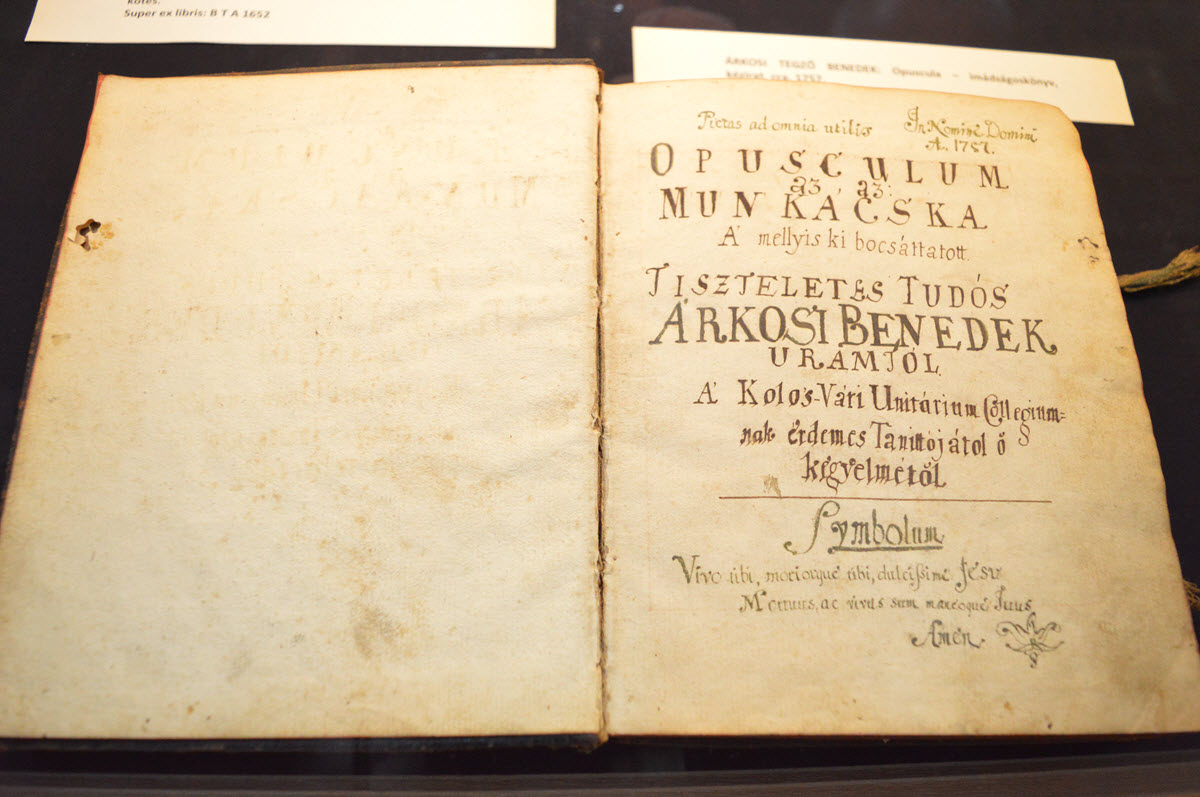 kötés.
Super ex libris: B T A 1652
ÁRKOSI TEGZŐ BENEDEK: Opuscula – imádságoskönyv,
kézirat, 1757
Pietas ad omnia utilis
In Nomine Domini
A. 1757.
OPUSCULUM
az az:
MUNKÁCSKA
A' mellyis ki bocsáttatott.
TISZTELETES TUDÓS
ÁRKOSI BENEDEK
URAMTÓL
A' Kolós-Vári Unitárium Collegium=
nak érdemes Tanittojátol ő
kegyelmétől
Symbolum
Vivo tibi, moriorque tibi, dulcissime Jesu
Mortuus, ac vivus sum maneoque Tuus
Amen.